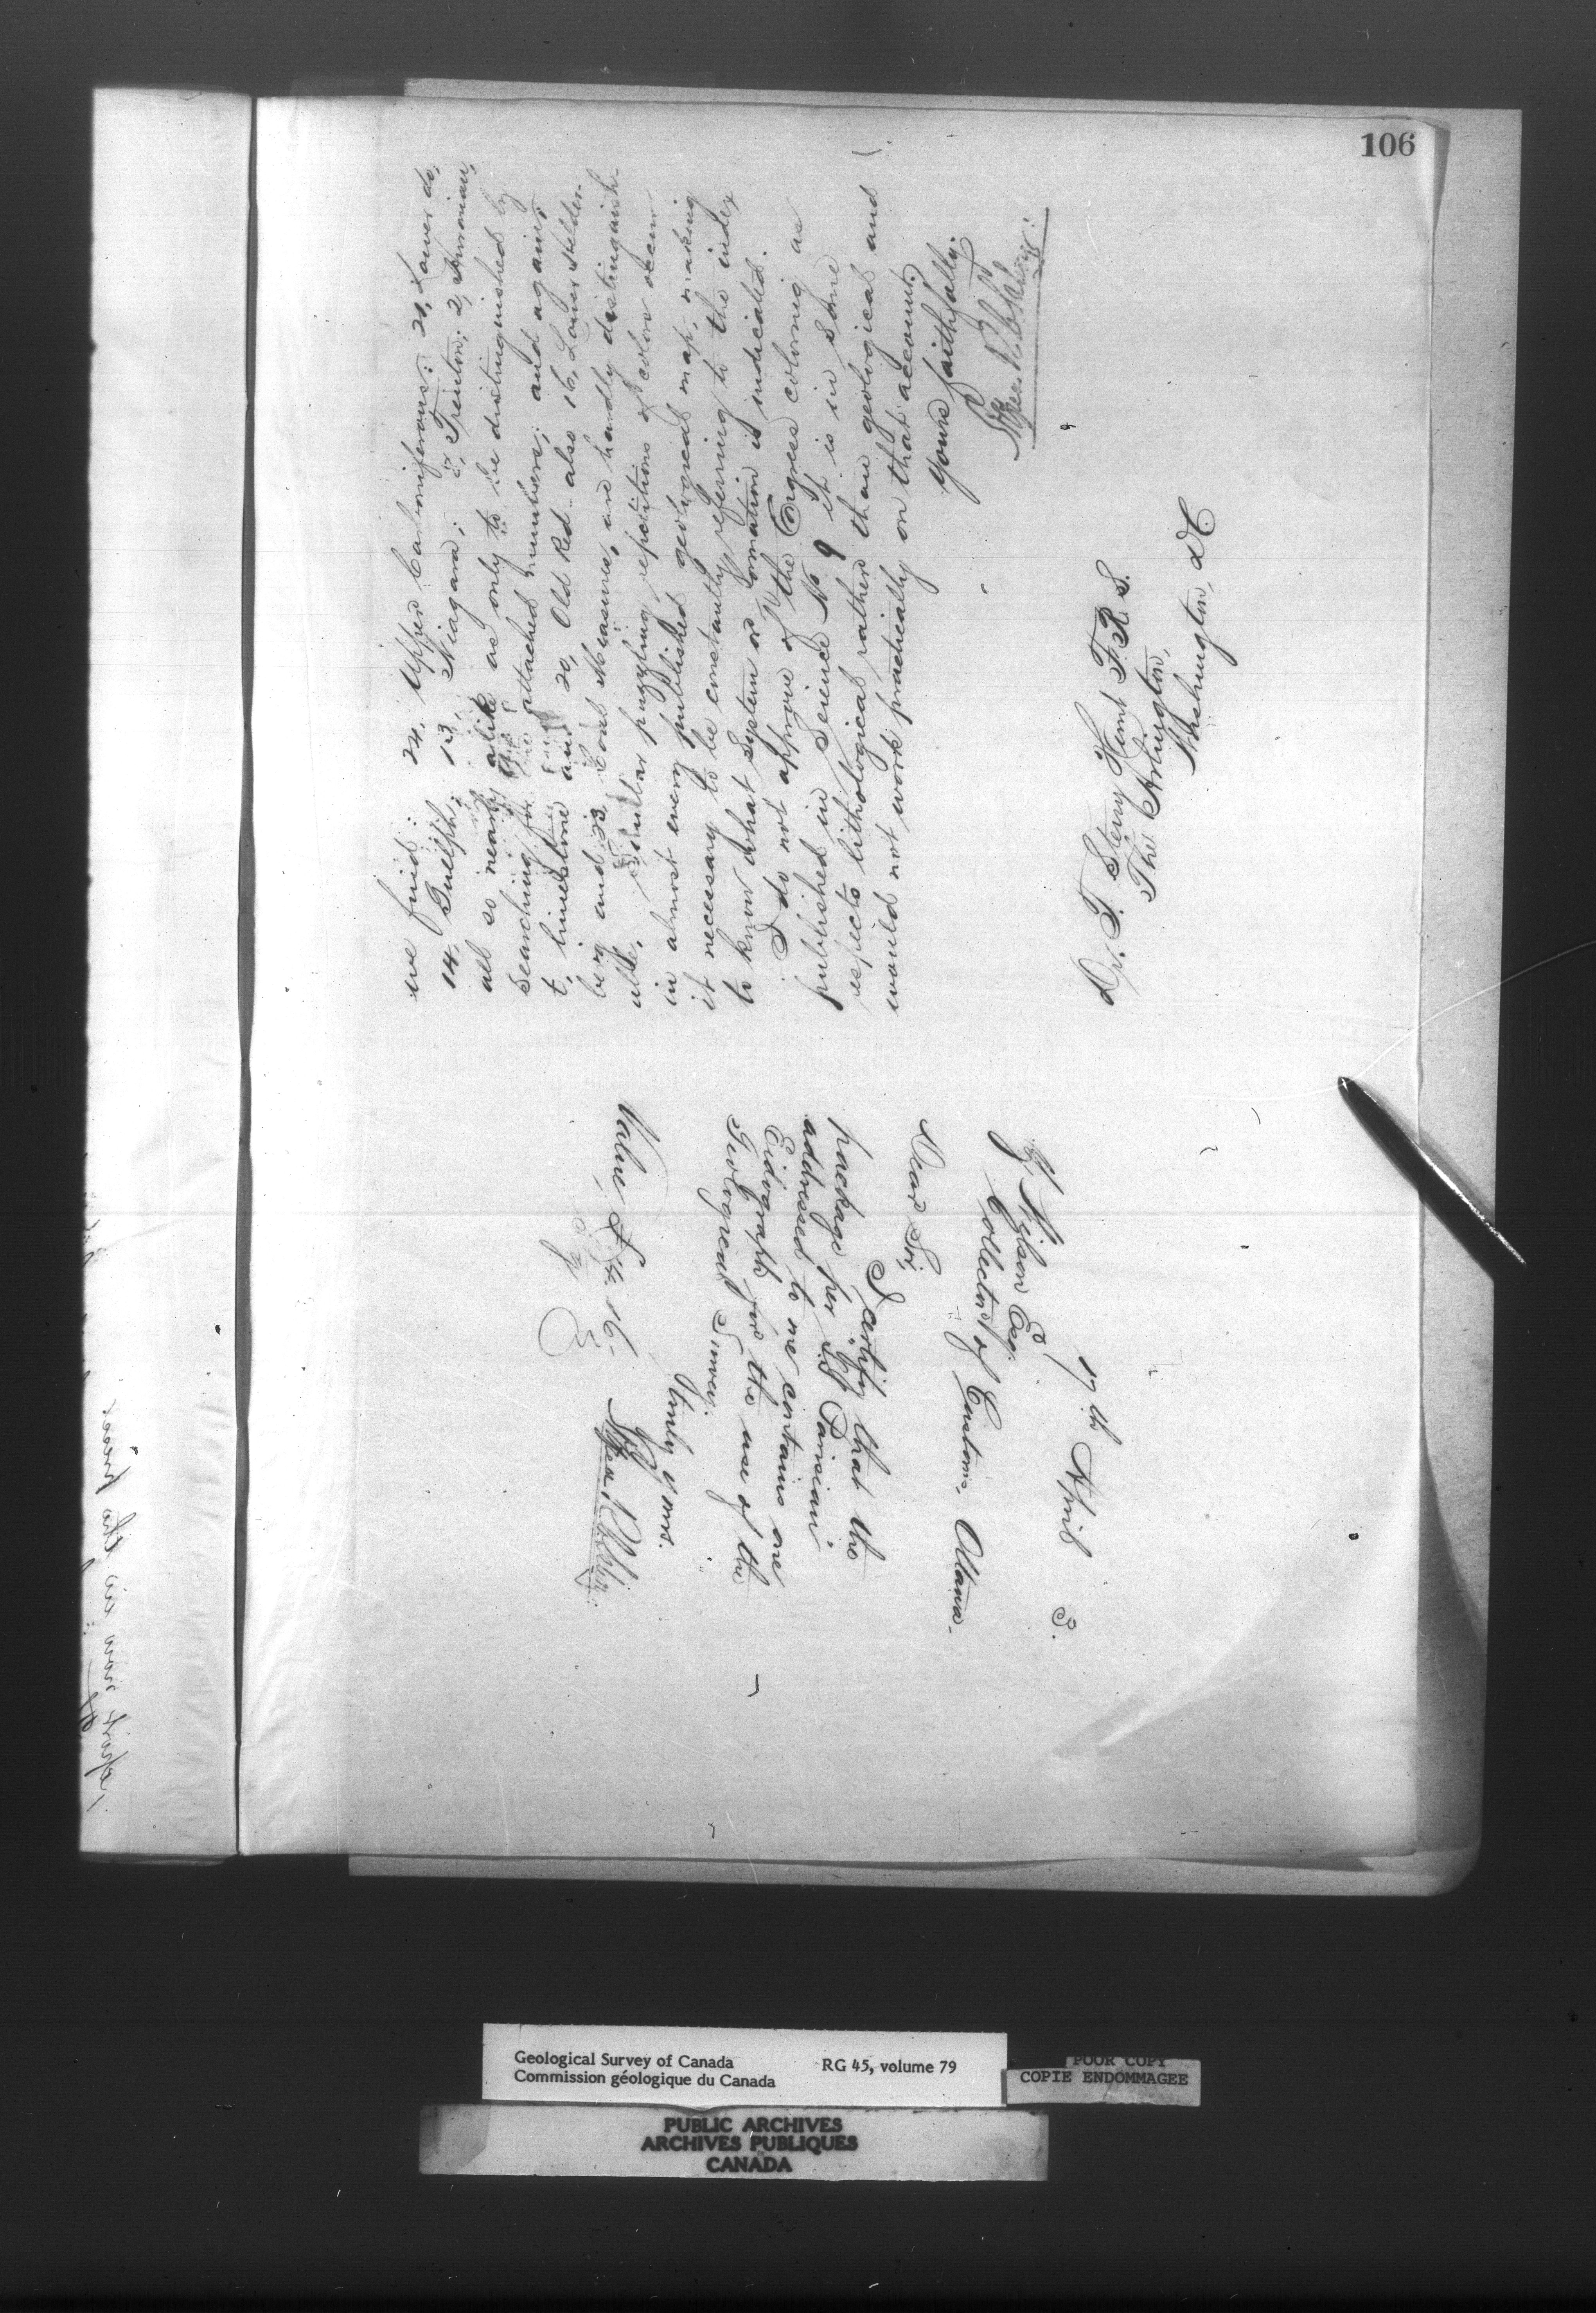 106
we find: 24, Upper Carboniferous: 21, Lower do,
14, Guelph; 13, Niagara; 8, Trenton; 2, Huronian,
all so nearly alike as only to be distinguished by
searching for the attached numbers; and again;
t, limestone and 20, Old Red - also 16, Lower Helder-
berg and 23 Coal Measures, are hardly distinguish-
able. Similar puzzling repetitions of colors occur
in almost every published geological map, making
it necessary to be constantly referring to the index
to know what System or formation is indicated.
I do not approve of the Congress coloring as
published in Science No. 9 it is in some
respects lithological rather than geological and
would not work practically on that account.
Yours faithfully.
Dr. T. Sterry Hunt F.R.S.
The Arlington,
Washington, DC
17th April 3.
Z. Wilson Esq.
Collector of Customs, Ottawa.
Dear Sir,
I certify that the
package per SS "Parisian"
addressed to me contains one
Eidograph for the use of the
Geological Survey.
Truly yours.
Value £ 16-
report now in the press
Geological Survey of Canada
Commission géologique du Canada
RG 45, volume 79
POOR COPY
COPIE ENDOMMAGEE
PUBLIC ARCHIVES
ARCHIVES PUBLIQUES
CANADA